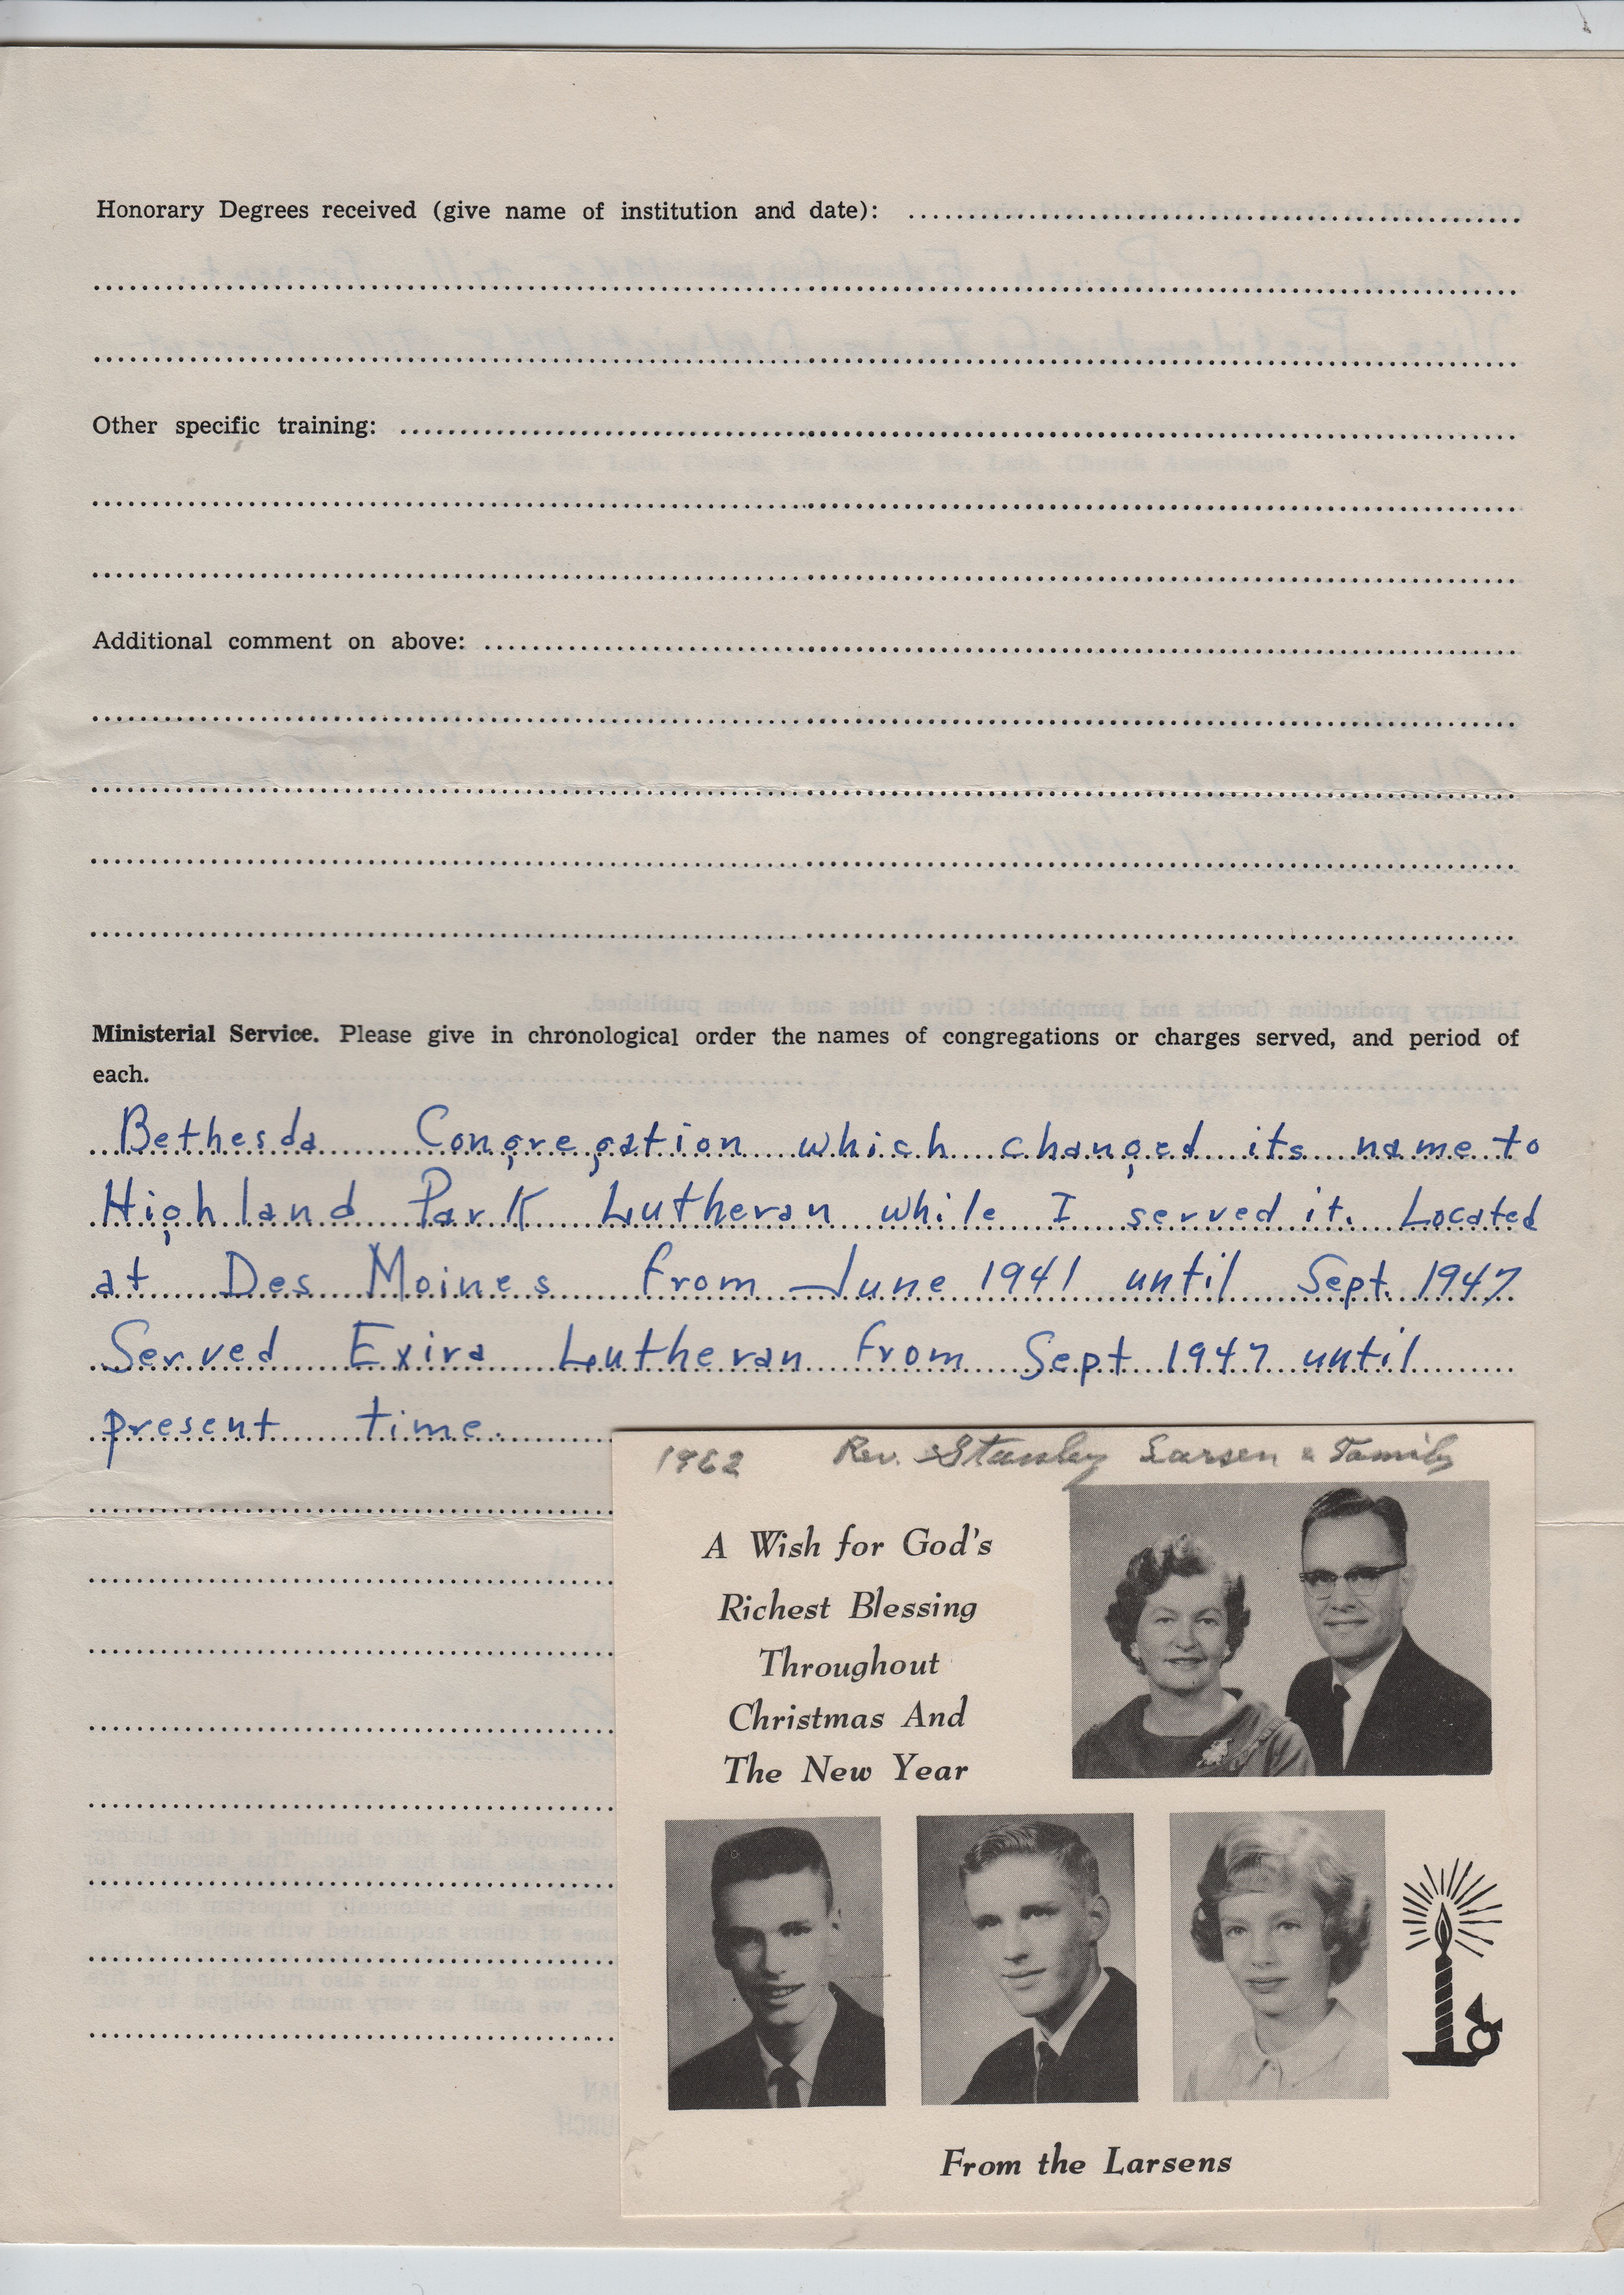 Honorary Degrees received (give name of institution and date):
Other specific training:
Additional comment on above:
Literary production (books and pamphlets): Give titles and when published.
Ministerial Service. Please give in chronological order the names of congregations or charges served, and period of
each.
Bethesda Congregation which changed its name to
Highland Park Lutheran while I served it. Located
at Des Moines from June 1941 until Sept. 1947
Served Exira Lutheran from Sept 1947 until
present time.
1962 Rev. Stanley Larsen & Family
A Wish for God's
Richest Blessing
Throughout
Christmas And
The New Year
From the Larsens